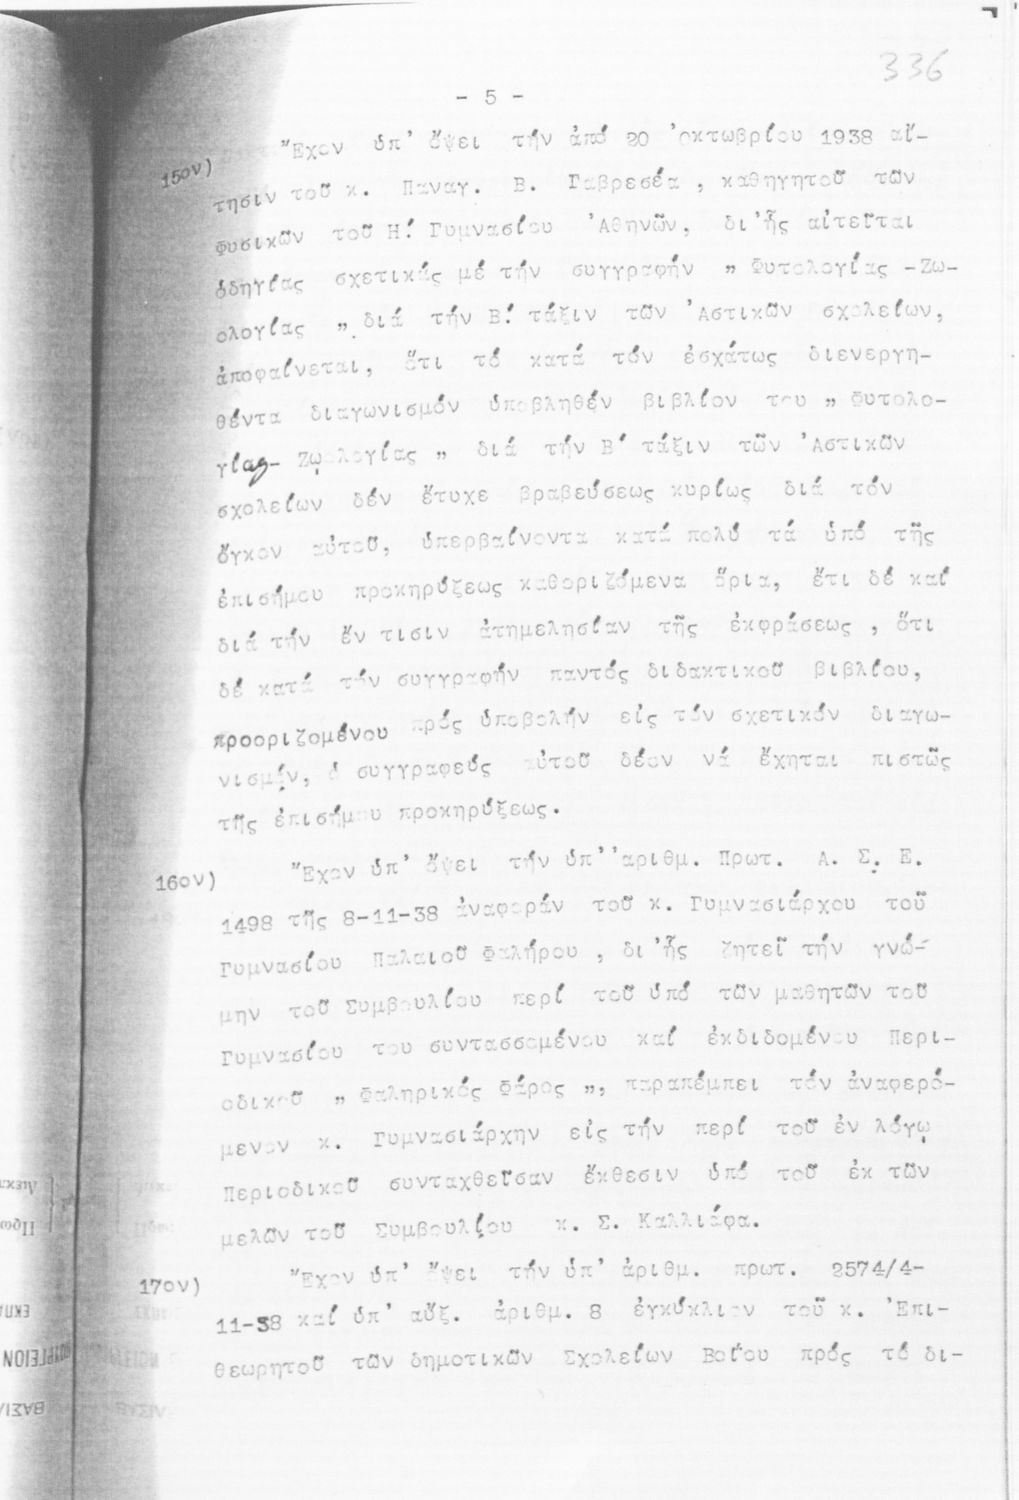 336
- 5 -
15ον) Ἔχον ὑπ' ὄψει τήν ἀπό 20 Ὀκτωβρίου 1938 αἴ-
τησιν τοῦ κ. Παναγ. Β. Γαβρεσέα , καθηγητοῦ τῶν
Φυσικῶν τοῦ Η! Γυμνασίου Ἀθηνῶν, δι'ἧς αἰτεῖται
ὁδηγίας σχετικάς μέ τήν συγγραφήν " Φυτολογίας -Ζω-
ολογίας " διά τήν Β! τάξιν τῶν Ἀστικῶν σχολείων,
ἀποφαίνεται, ὅτι τό κατά τόν ἐσχάτως διενεργη-
θέντα διαγωνισμόν ὑποβληθέν βιβλίον του " Φυτολο-
γίας- Ζωολογίας " διά τήν Β' τάξιν τῶν Ἀστικῶν
σχολείων δέν ἔτυχε βραβεύσεως κυρίως διά τόν
ὄγκον αὐτοῦ, ὑπερβαίνοντα κατά πολύ τά ὑπό τῆς
ἐπισήμου προκηρύξεως καθοριζόμενα ὅρια, ἔτι δέ καί
διά τήν ἔν τισιν ἀτημελησίαν τῆς ἐκφράσεως , ὅτι
δέ κατά τήν συγγραφήν παντός διδακτικοῦ βιβλίου,
προοριζομένου πρός ὑποβολήν εἰς τόν σχετικόν διαγω-
νισμόν, ὁ συγγραφεύς αὐτοῦ δέον νά ἔχηται πιστῶς
τῆς ἐπισήμου προκηρύξεως.
16ον) Ἔχον ὑπ' ὄψει τήν ὑπ''αριθμ. Πρωτ. Α. Σ. Ε.
1498 τῆς 8-11-38 ἀναφοράν τοῦ κ. Γυμνασιάρχου τοῦ
Γυμνασίου Παλαιοῦ Φαλήρου , δι'ἧς ζητεῖ τήν γνώ-
μην τοῦ Συμβουλίου περί τοῦ ὑπό τῶν μαθητῶν τοῦ
Γυμνασίου του συντασσομένου καί ἐκδιδομένου Περι-
οδικοῦ " Φαληρικός Φάρος ", παραπέμπει τόν ἀναφερό-
μενον κ. Γυμνασιάρχην εἰς τήν περί τοῦ ἐν λόγῳ
Περιοδικοῦ συνταχθεῖσαν ἔκθεσιν ὑπό τοῦ ἐκ τῶν
μελῶν τοῦ Συμβουλίου κ. Σ. Καλλιάφα.
17ον) Ἔχον ὑπ' ὄψει τήν ὑπ' ἀριθμ. πρωτ. 2574/4-
11-38 καί ὑπ' αὔξ. ἀριθμ. 8 ἐγκύκλιον τοῦ κ. Ἐπι-
θεωρητοῦ τῶν δημοτικῶν Σχολείων Βοΐου πρός τό δι-